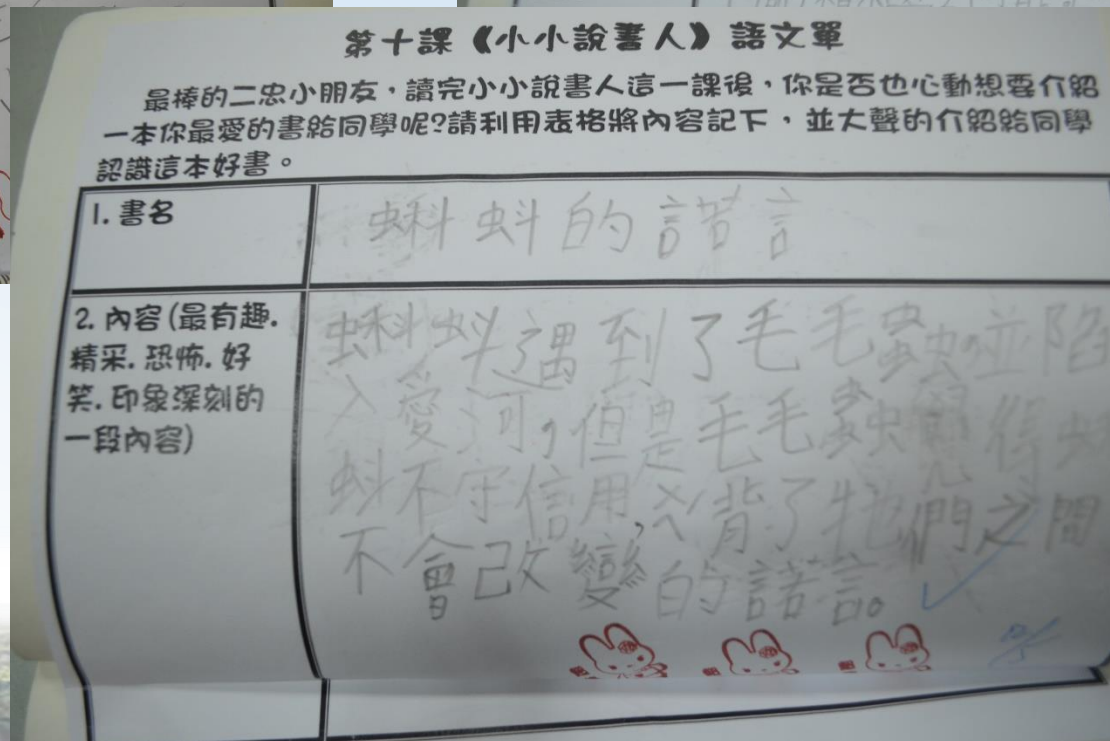 第十課《小小說書人》語文單
最棒的二忠小朋友，讀完小小說書人這一課後，你是否也心動想要介紹
一本你最愛的書給同學呢?請利用表格將內容記下，並大聲的介紹給同學
認識這本好書。
1. 書名
蝌蚪的諾言
2. 內容(最有趣.
精采.恐怖.好
笑.印象深刻的
一段內容)
蝌蚪遇到了毛毛蟲，並陷
入愛河，但是毛毛蟲覺得蝌
蚪不守信用，違背了牠們之間
不會改變的諾言。